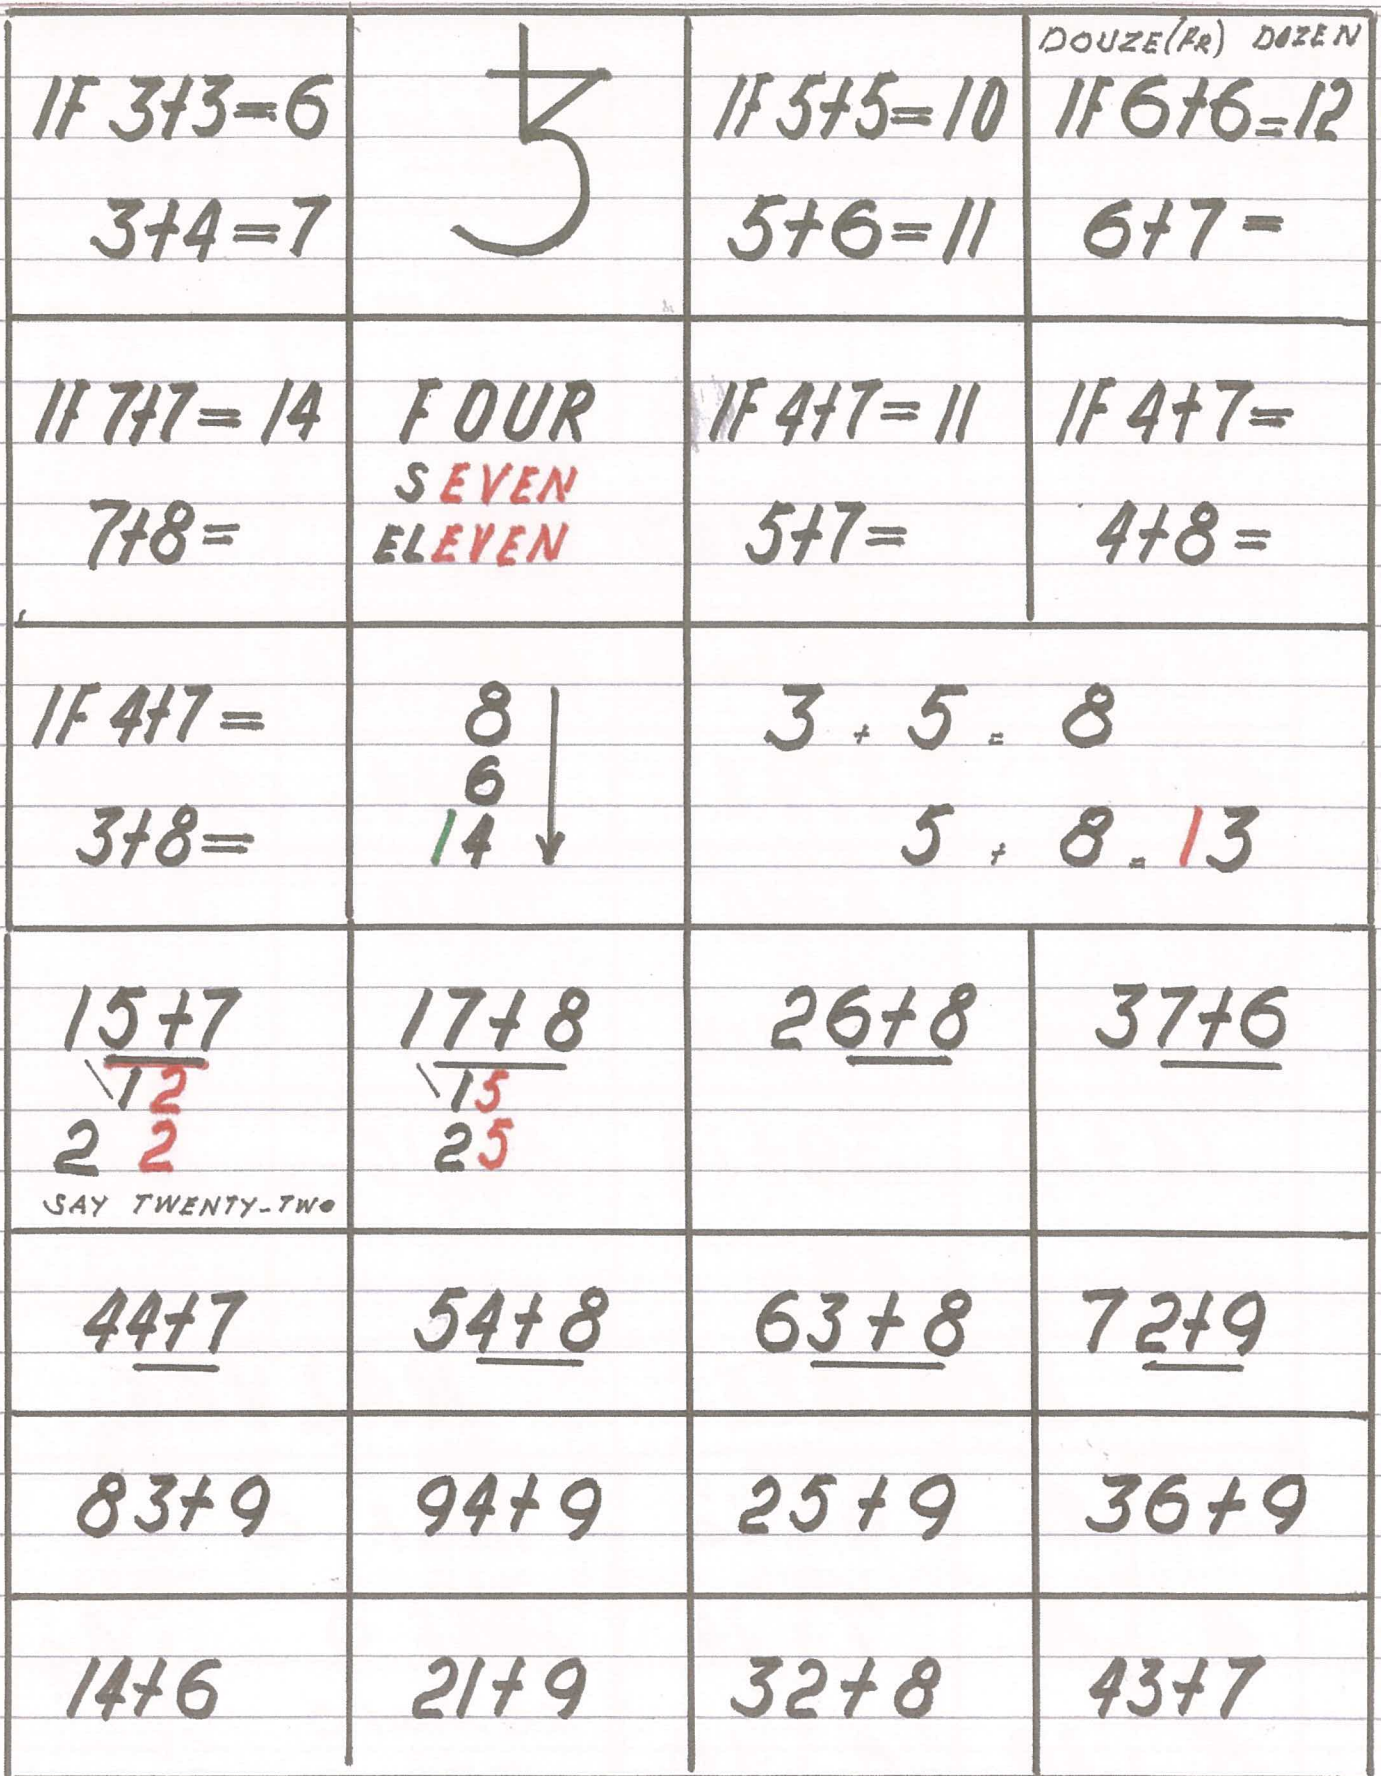 IF 3+3=6
3+4=7
IF 5+5=10
5+6=11
DOUZE(FR) DOZEN
IF 6+6=12
6+7=
IF 7+7=14
7+8=
FOUR
SEVEN
ELEVEN
IF 4+7=11
5+7=
IF 4+7=
4+8=
IF 4+7=
3+8=
8
6
14
3 + 5 = 8
5 + 8 = 13
15+7
12
2 2
SAY TWENTY-TWO
17+8
15
25
26+8
37+6
44+7
54+8
63+8
72+9
83+9
94+9
25+9
36+9
14+6
21+9
32+8
43+7